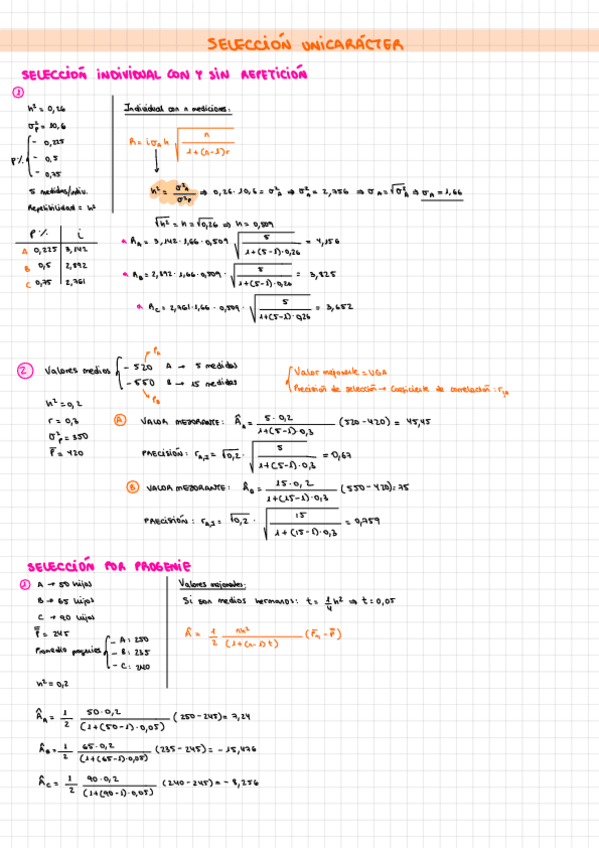 SELECCIÓN UNICARÁCTER
SELECCIÓN INDIVIDUAL CON Y SIN REPETICIÓN
1
h² = 0,26
σ²p = 10,6
P% - 0,225
- 0,5
- 0,75
5 medidas/indiv.
Repetibilidad = h²
Individual con n mediciones:
R = i σA h √(n / 1+(n-1)r)
h² = σ²A / σ²p ⇒ 0,26 · 10,6 = σ²A ⇒ σ²A = 2,756 ⇒ σA = √σ²A ⇒ σA = 1,66
√h² = h = √0,26 ⇒ h = 0,509
P% i
A 0,225 3,142
B 0,5 2,892
C 0,75 2,761
RA = 3,142 · 1,66 · 0,509 √(5 / 1+(5-1)·0,26) = 4,156
RB = 2,892 · 1,66 · 0,509 · √(5 / 1+(5-1)·0,26) = 3,825
RC = 2,761 · 1,66 · 0,509 · √(5 / 1+(5-1)·0,26) = 3,652
2 Valores medios
PA
- 520 A → 5 medidas
- 550 B → 15 medidas
PB
Valor mejorante = UGA
Precisión de selección → Coeficiente de correlación:
h² = 0,2
r = 0,3
σ²p = 350
P̄ = 420
A VALOR MEJORANTE: ÂA = 5 · 0,2 / 1+(5-1)·0,3 (520-420) = 45,45
PRECISIÓN: rA,I = √0,2 · √(5 / 1+(5-1)·0,3) = 0,67
B VALOR MEJORANTE: ÂB = 15 · 0,2 / 1+(15-1)·0,3 (550-420) = 75
PRECISIÓN: rA,I = √0,2 · √(15 / 1+(15-1)·0,3) = 0,759
SELECCIÓN POR PROGENIE
1 A → 50 hijos
B → 65 hijos
C → 90 hijos
P̄ = 245
Promedio progenies - A: 250
- B: 235
- C: 240
h² = 0,2
Valores mejorantes:
Si son medios hermanos: t = 1/4 h² ⇒ t = 0,05
Â = 1/2 nh² / (1+(n-1)t) (P̄n - P̄)
ÂA = 1/2 50·0,2 / (1+(50-1)·0,05) (250-245) = 7,24
ÂB = 1/2 65·0,2 / (1+(65-1)·0,05) (235-245) = -15,476
ÂC = 1/2 90·0,2 / (1+(90-1)·0,05) (240-245) = -8,256